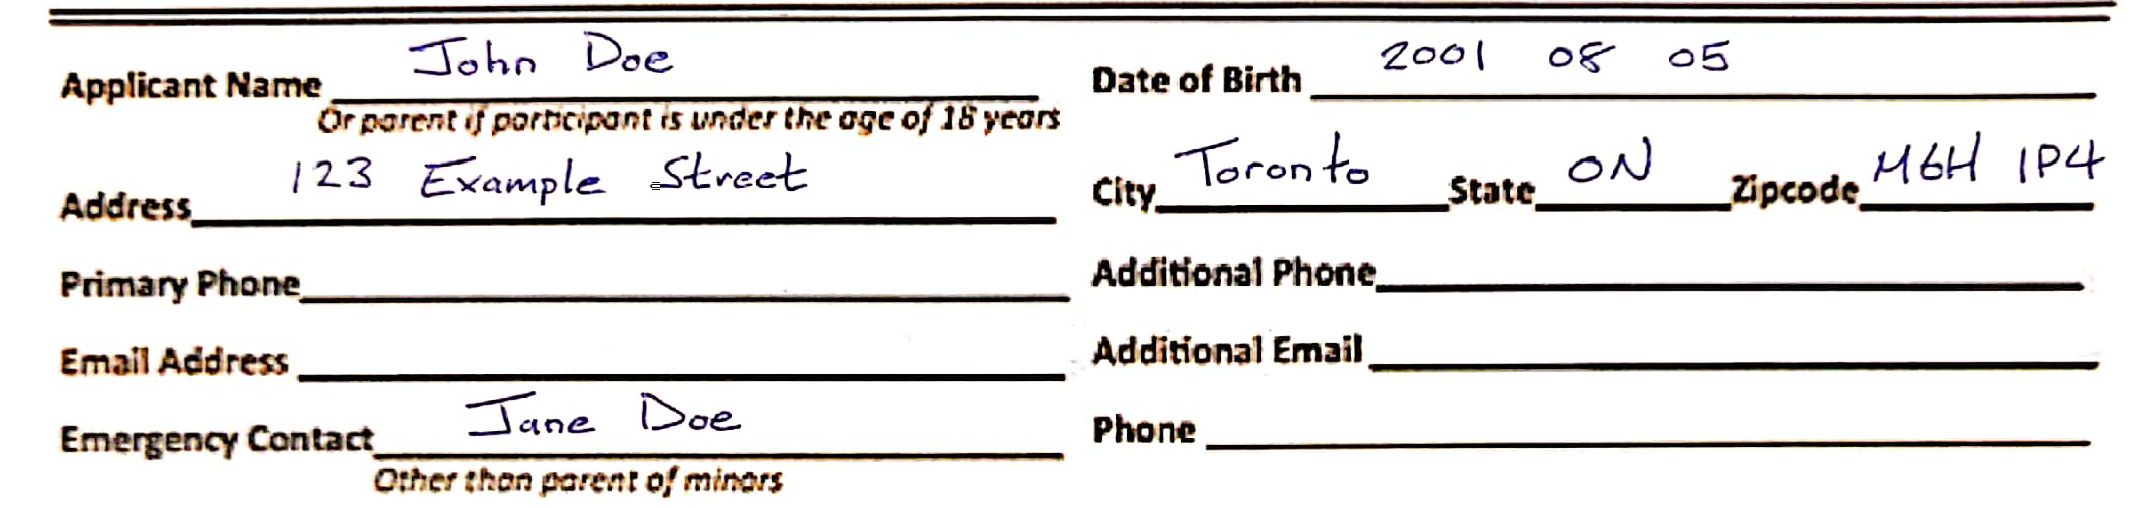 Applicant Name John Doe Date of Birth 2001 08 05
Or parent if participant is under the age of 18 years
Address 123 Example Street City Toronto State ON Zipcode M6H 1P4
Primary Phone Additional Phone
Email Address Additional Email
Emergency Contact Jane Doe Phone
Other than parent of minors